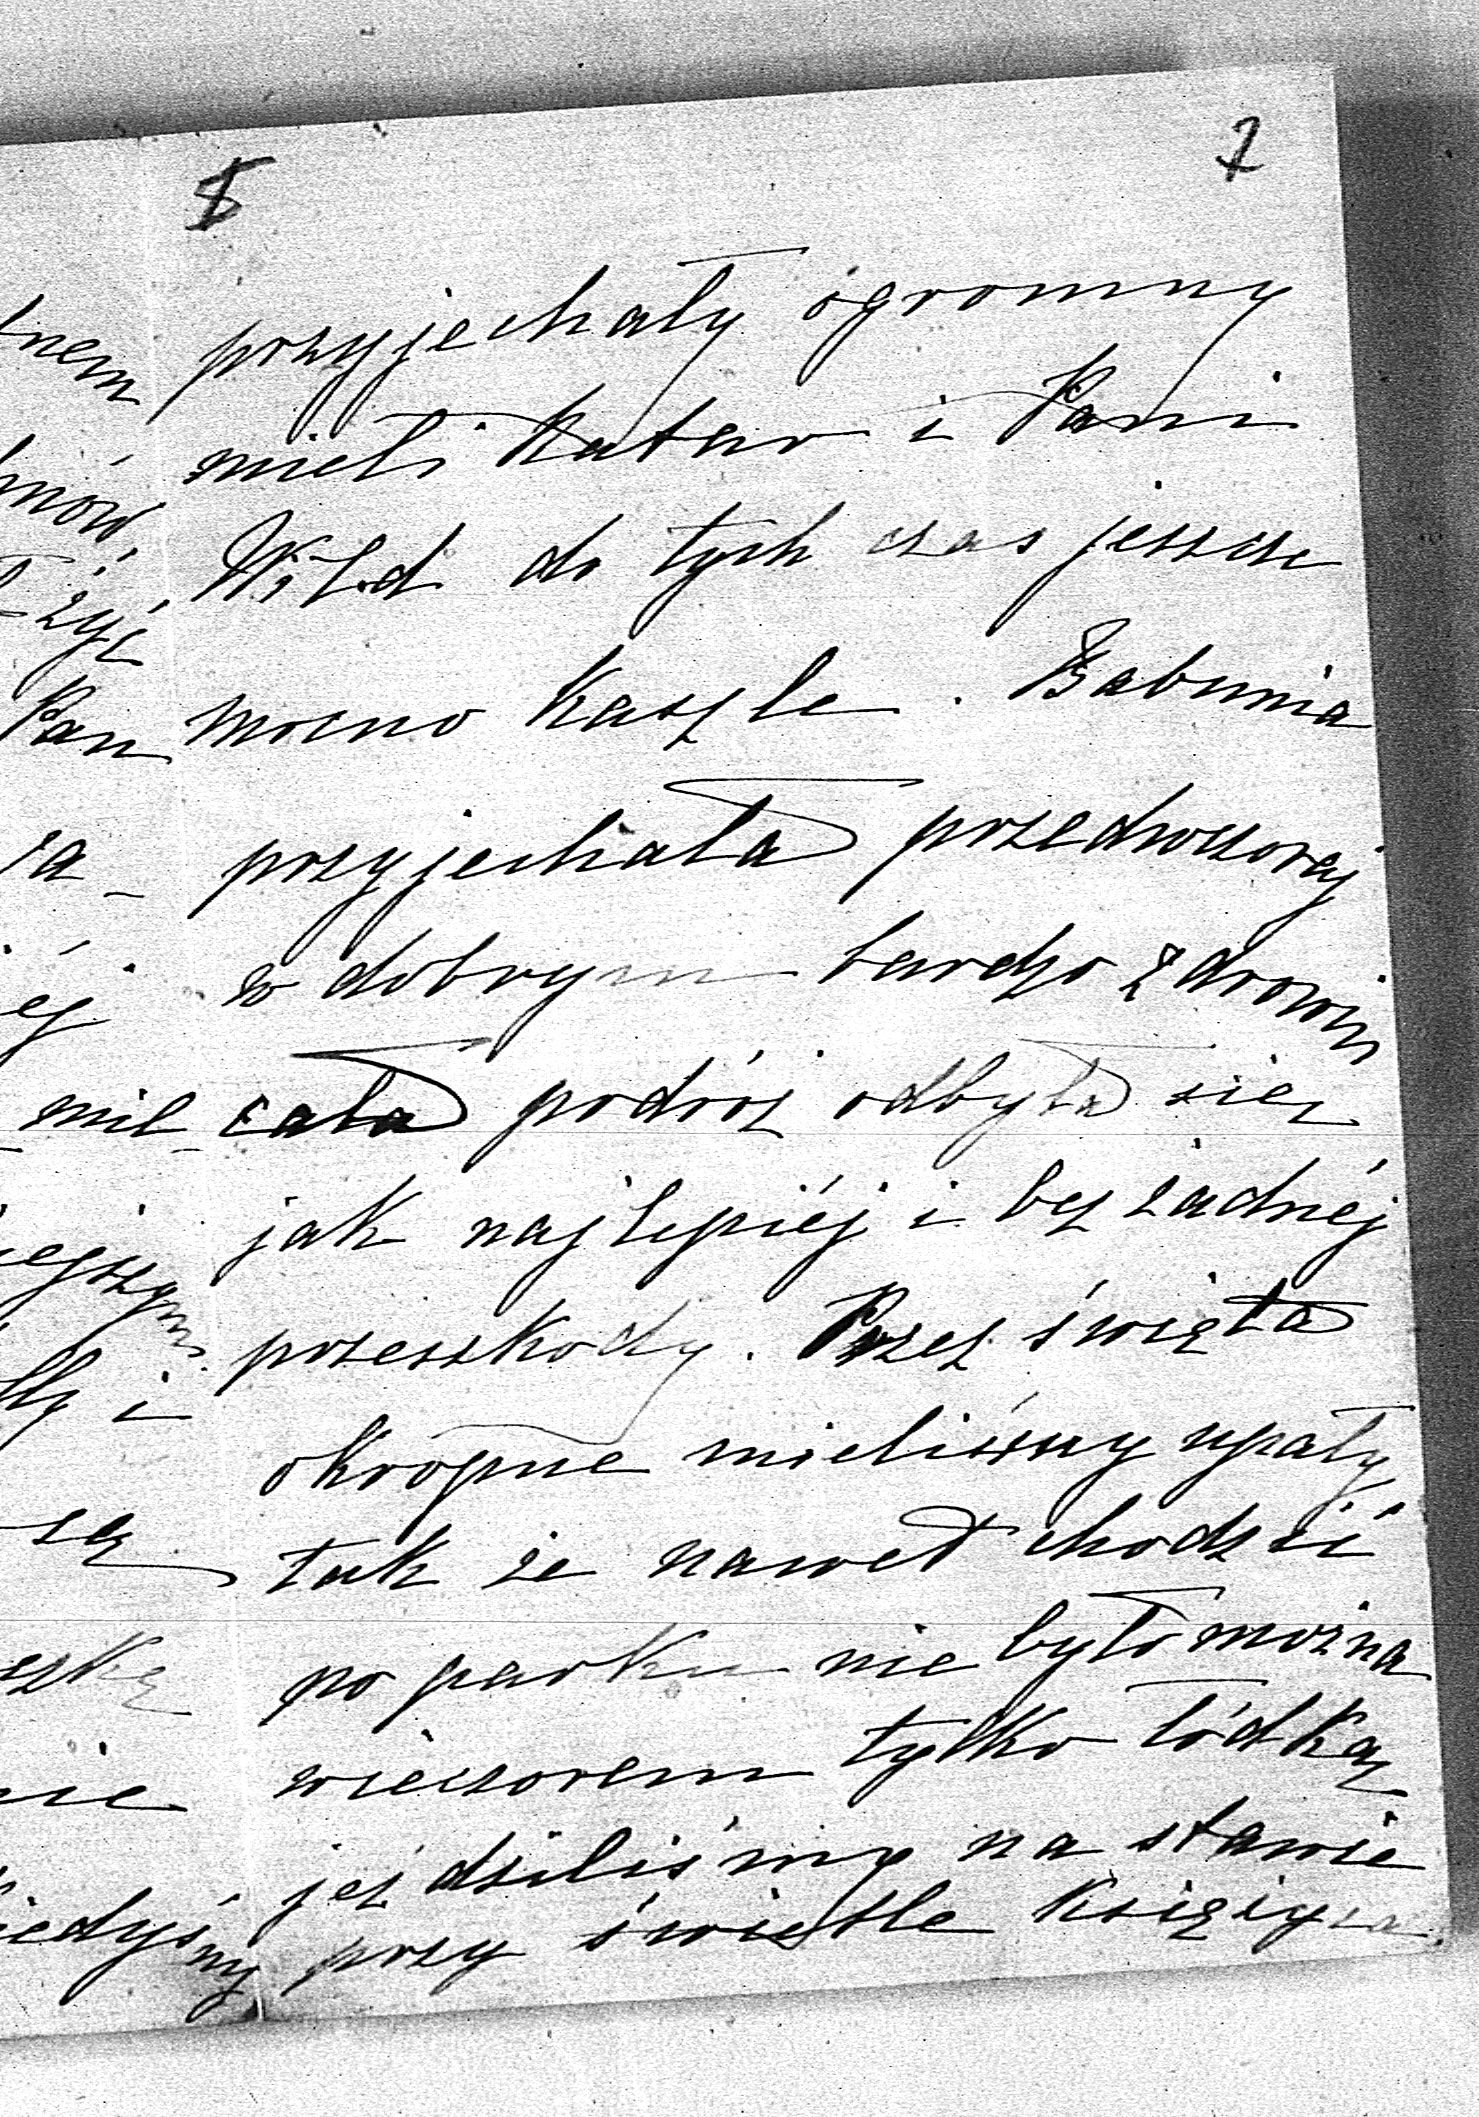 5 7
przyjechały ogromny
mieli katar i Pani
Wild do tych czas jeszcze
mocno kaszle. Babunia
przyjechała przedwczoraj
w dobrym bardzo zdrowiu
cała podróż odbyła się
jak najlepiéj i bez żadnéj
przeszkody. Przez święta
okropne mieliśmy upały,
tak że nawet chodzić
po parku nie było można
wieczorem tylko łódką
jeździliśmy na stawie
przy świetle księżyca.
żyć
Pan
mil-
i
nie